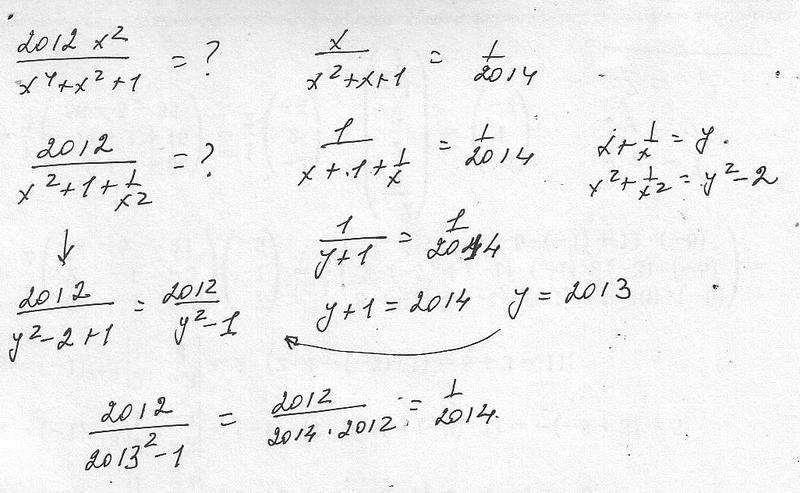 2012 x² / x⁴+x²+1 = ?    x / x²+x+1 = 1/2014
2012 / x²+1+1/x² = ?    1 / x+1+1/x = 1/2014    x+1/x = y.
x²+1/x² = y²-2
↓    1 / y+1 = 1/2014
2012 / y²-2+1 = 2012 / y²-1    y+1 = 2014    y = 2013
2012 / 2013²-1 = 2012 / 2014·2012 = 1/2014.